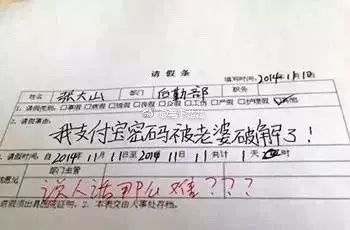 请假条
填写时间 2014年11月1日
姓名 张大山 部门 后勤部 职务
1、请假类别: 事假 病假 婚假 丧假 公假 工伤 产假 护理假 其他
2、请假事由:
我支付宝密码被老婆破解了!
3、请假时间:自 2014年 11月 11日至 2014年 11月 11日 共计 1天 时
部门主管
说人话那么难???
2、本表交由人事处存档。